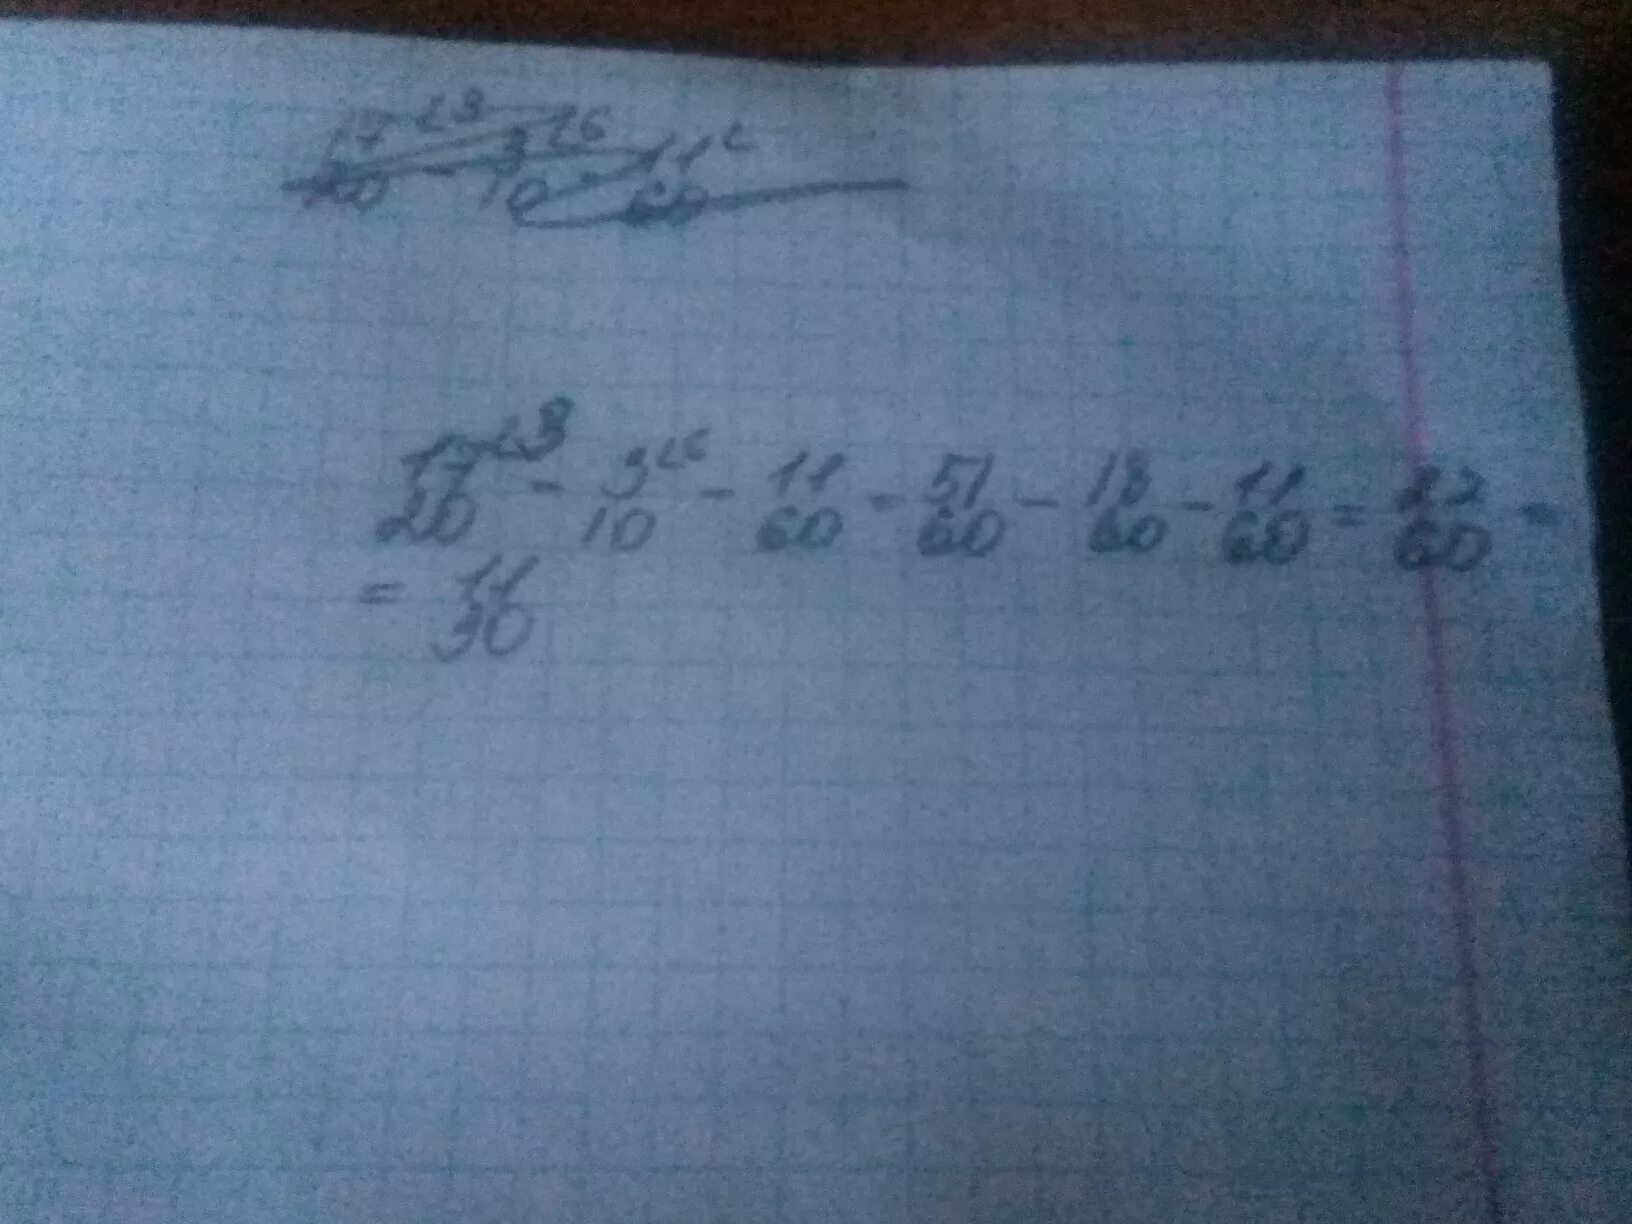 17⌊3/20 - 3⌊6/10 - 11⌊/60
17⌊3/20 - 3⌊6/10 - 11/60 = 51/60 - 18/60 - 11/60 = 22/60 =
= 11/30